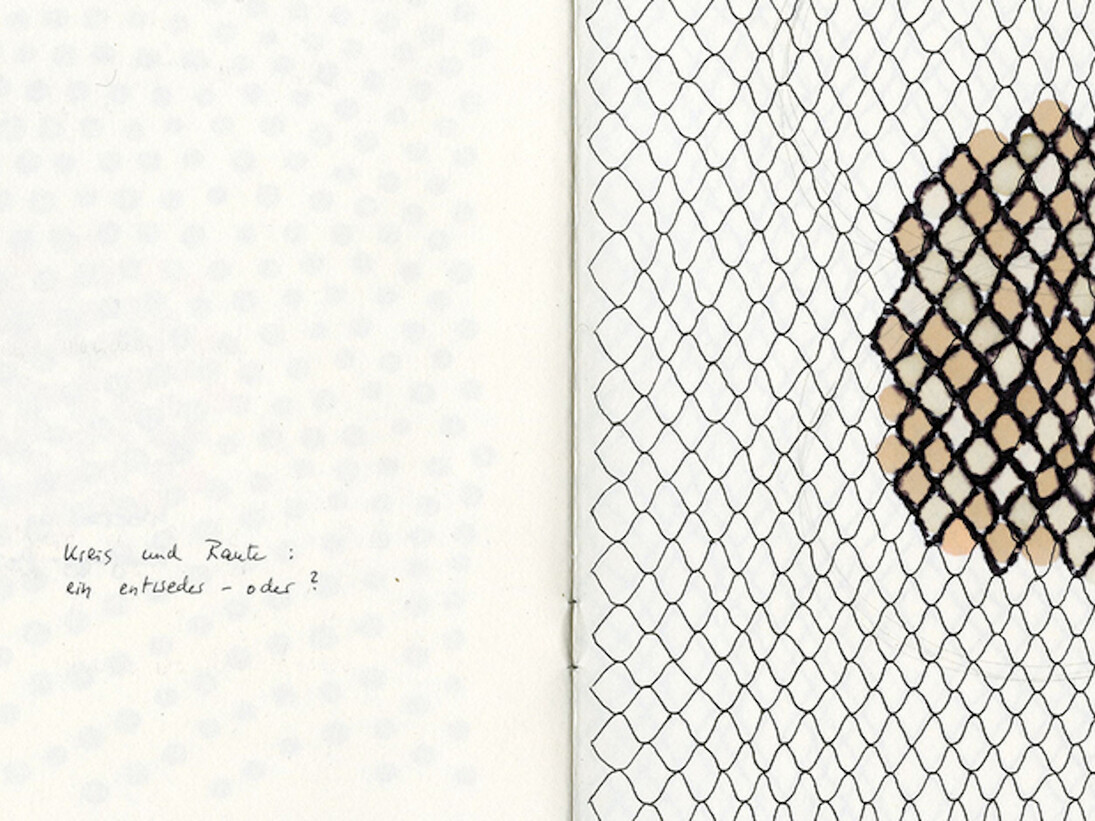 Kreis und Raute :
ein entweder – oder ?